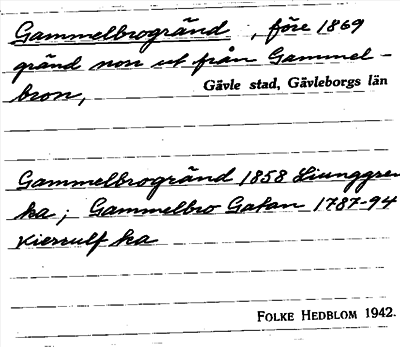 Gammelbrogränd, före 1869
gränd norr ut från Gammel-
bron,
Gävle stad, Gävleborgs län
Gammelbrogränd 1858 Ljunggren
ka; Gammelbro Gatan 1787-94
Kierrulf ka
FOLKE HEDBLOM 1942.